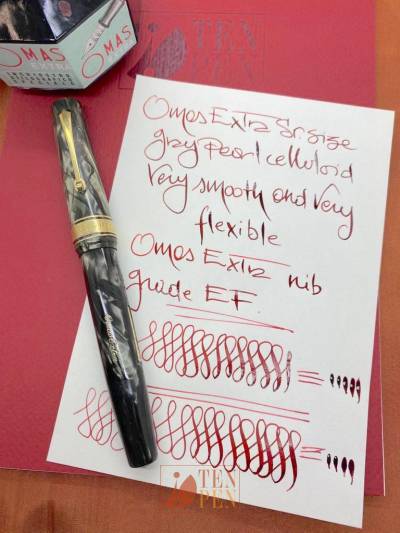 OMAS
OMAS
TEN
PEN
Omas Extra Sr. size
gray pearl celluloid
very smooth and very
flexible
Omas Extra nib
grade EF.
TEN
PEN